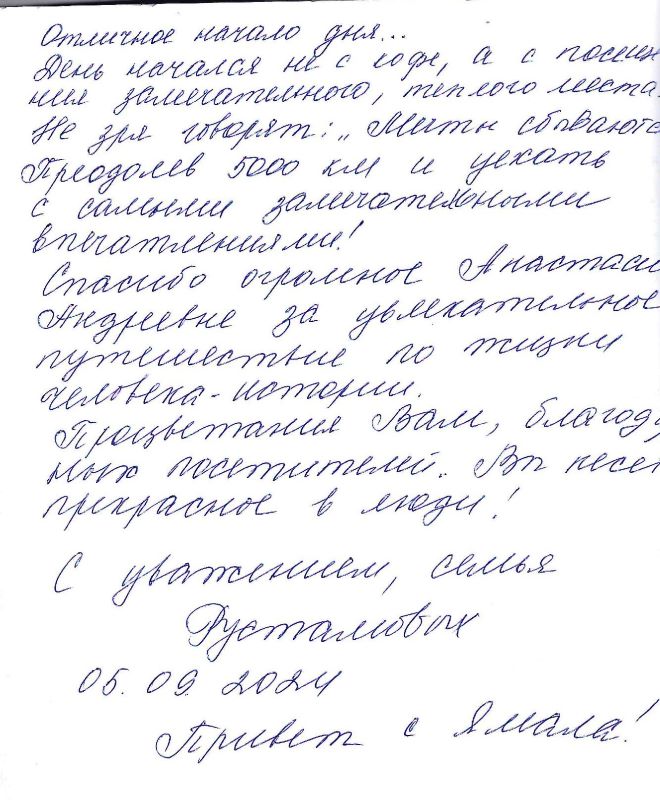 Отличное начало дня...
День начался не с кофе, а с посещ
ния замечательного, теплого места.
Не зря говорят: „Мечты сбываютс
Преодолев 5000 км и уехать
с самыми замечательными
впечатлениями!
Спасибо огромное Анастаси
Андреевне за увлекательное
путешествие по жизни
человека-истории.
Процветания Вам, благод
ных посетителей. Вы несет
прекрасное в люди!
С уважением, семья
Рустамовых
05.09.2024
Привет с Ямала!